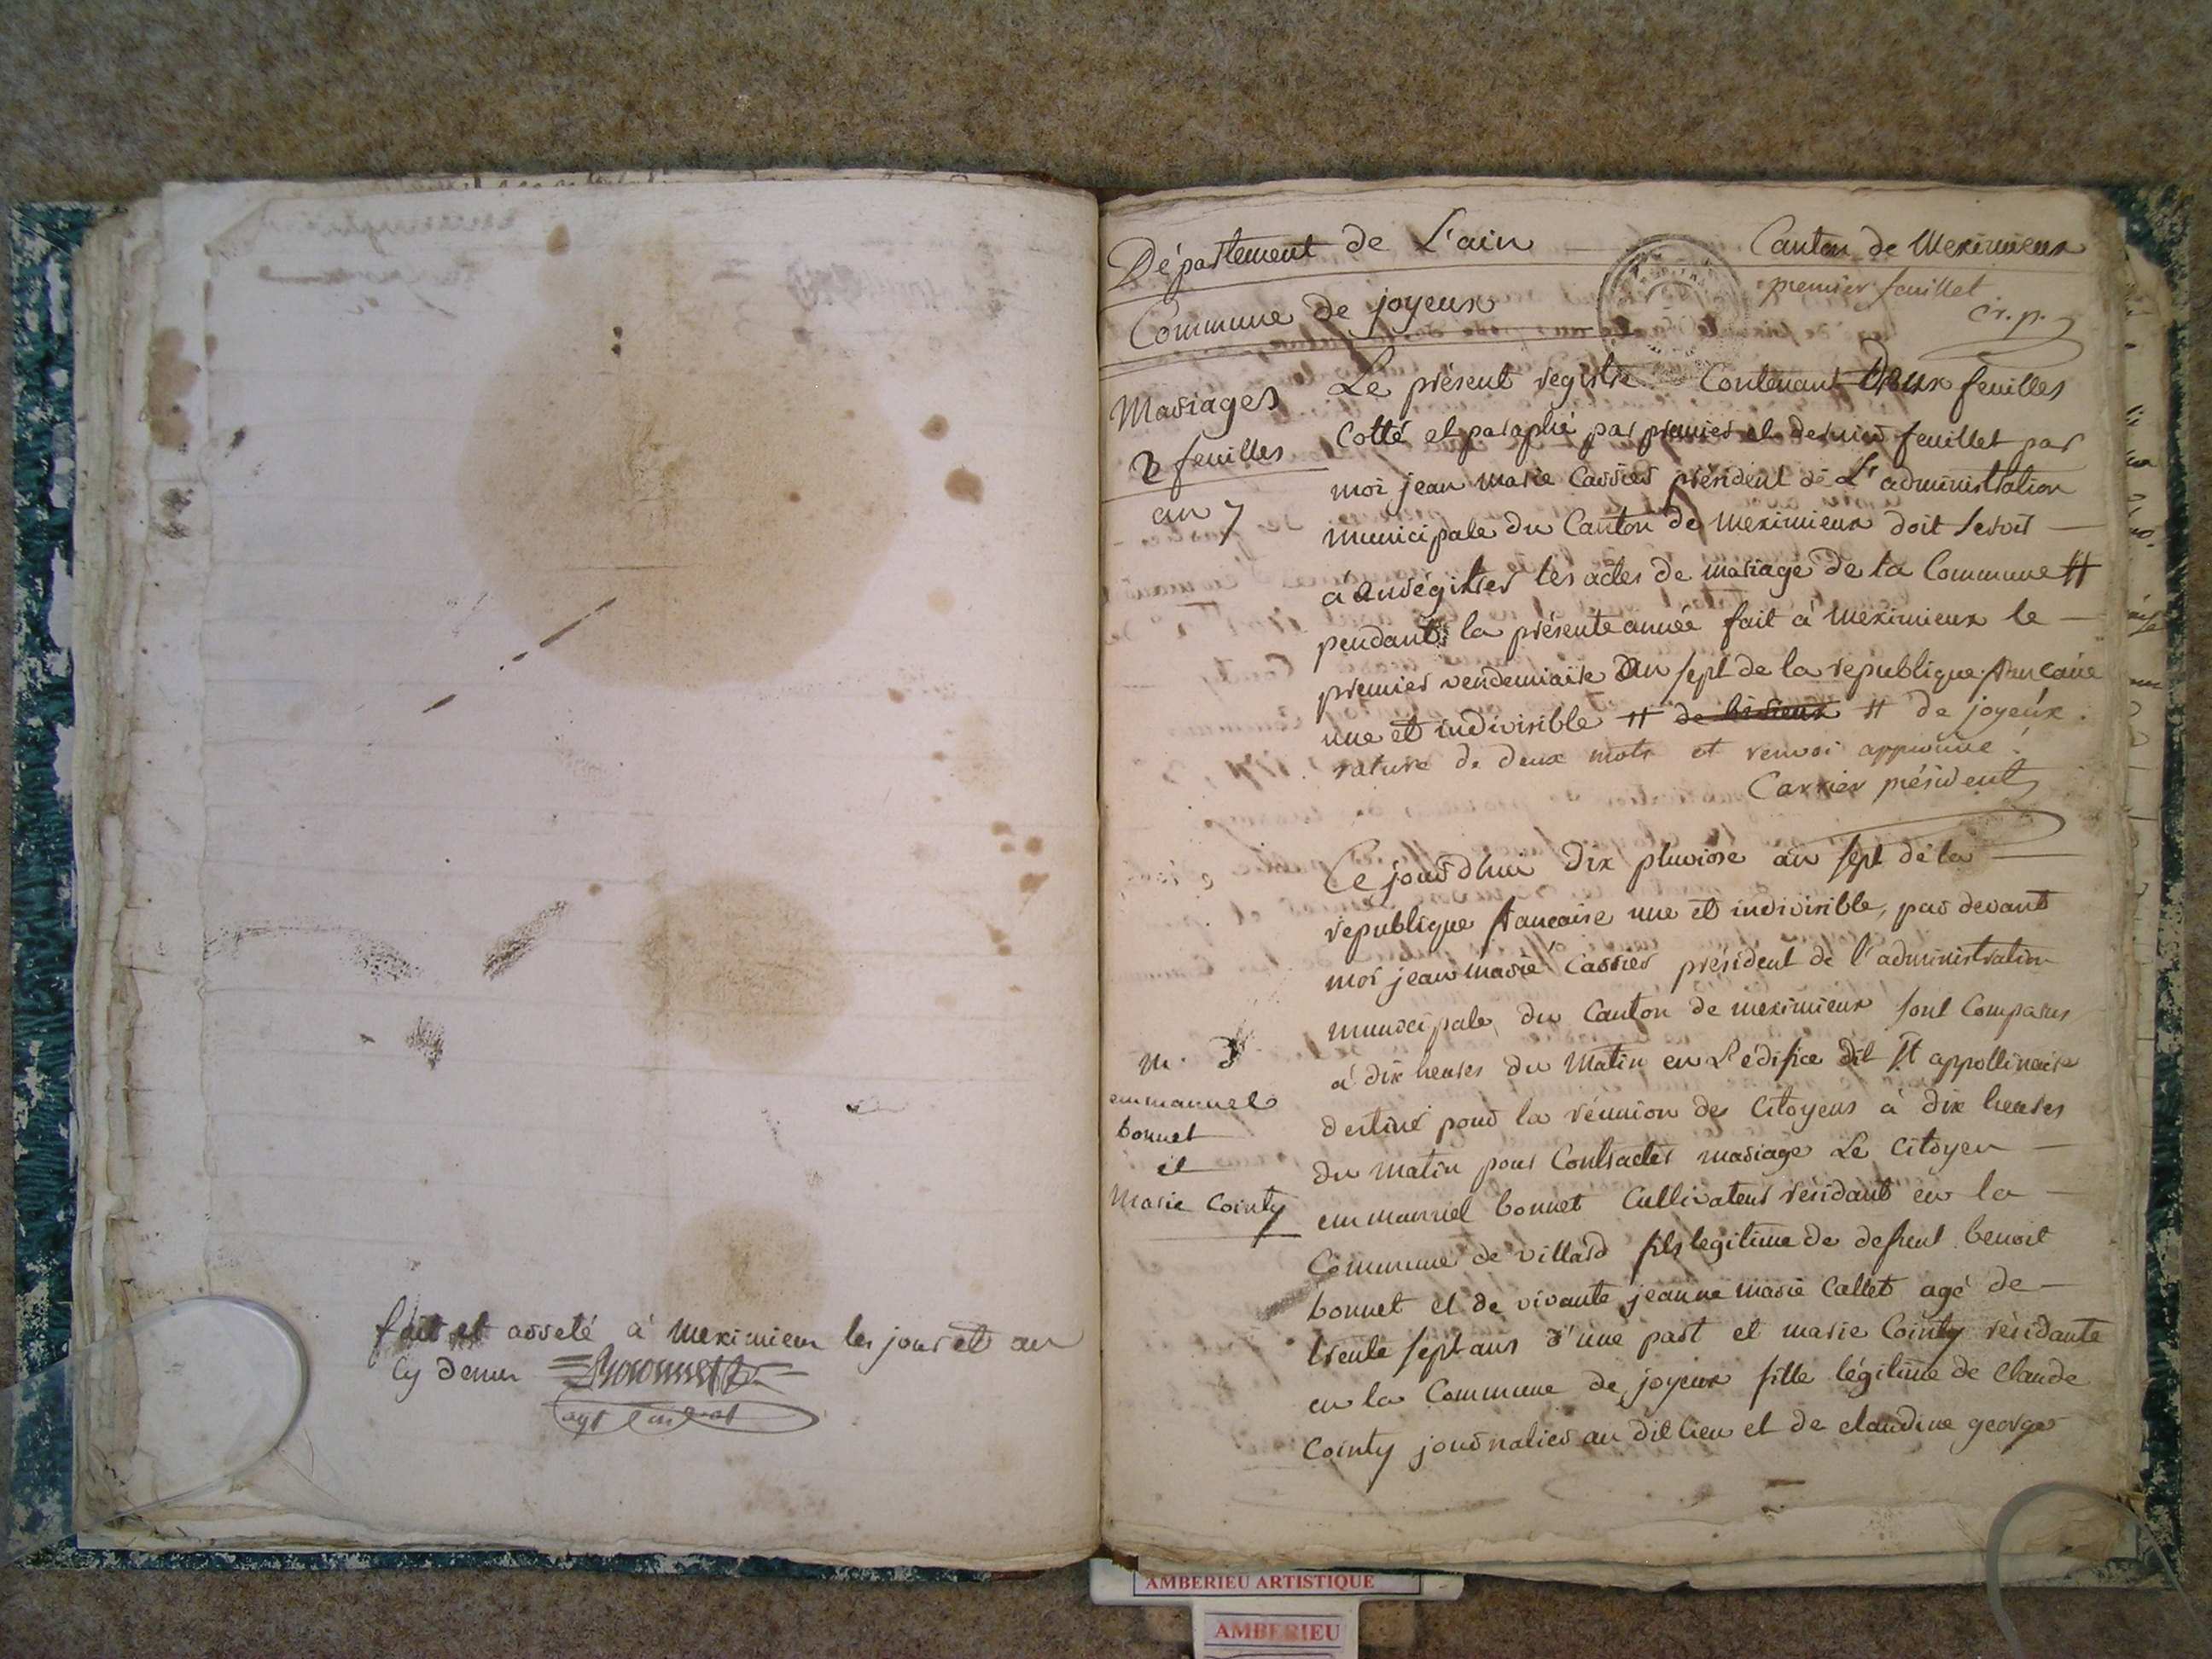 fait et arreté à meximieux les jour et an
cy dessus
Département de L'ain Canton de Meximieux
premier feuillet
Commune de joyeux
cr. p.
Mariages
2 feuilles
an 7
Le présent registre Contenant Deux feuilles
Cotté et paraphé par premier et dernier feuillet par
moi jean marie Carrier président de L'administration
municipale du Canton de meximieux doit servir
à enrégistrer les actes de mariage de la Commune #
pendant la présente année fait à meximieux le
premier vendemiaire an sept de la republique francaise
une et indivisible # # de joyeux.
rature de deux mots et renvoi approuvé.
Carrier président
Ce jourdhui dix pluviose an sept de la
republique francaise une et indivisible, par devant
moi jean marie Carrier président de l'administration
municipale du Canton de meximieux sont Comparus
à dix heures du matin en L'édifice dit St appollinaire
destiné pour la réunion des Citoyens à dix heures
du matin pour Contracter mariage Le Citoyen
emmanuel bonnet Cultivateur residant en la
Commune de villard fils legitime de defunt benoit
bonnet et de vivante jeanne marie Callet agé de
trente sept ans d'une part et marie Cointy résidante
en la Commune de joyeux fille légitime de Claude
Cointy journalier au dit lieu et de claudine george
m.
emmanuel
bonnet
et
Marie Cointy
AMBERIEU ARTISTIQUE
AMBERIEU